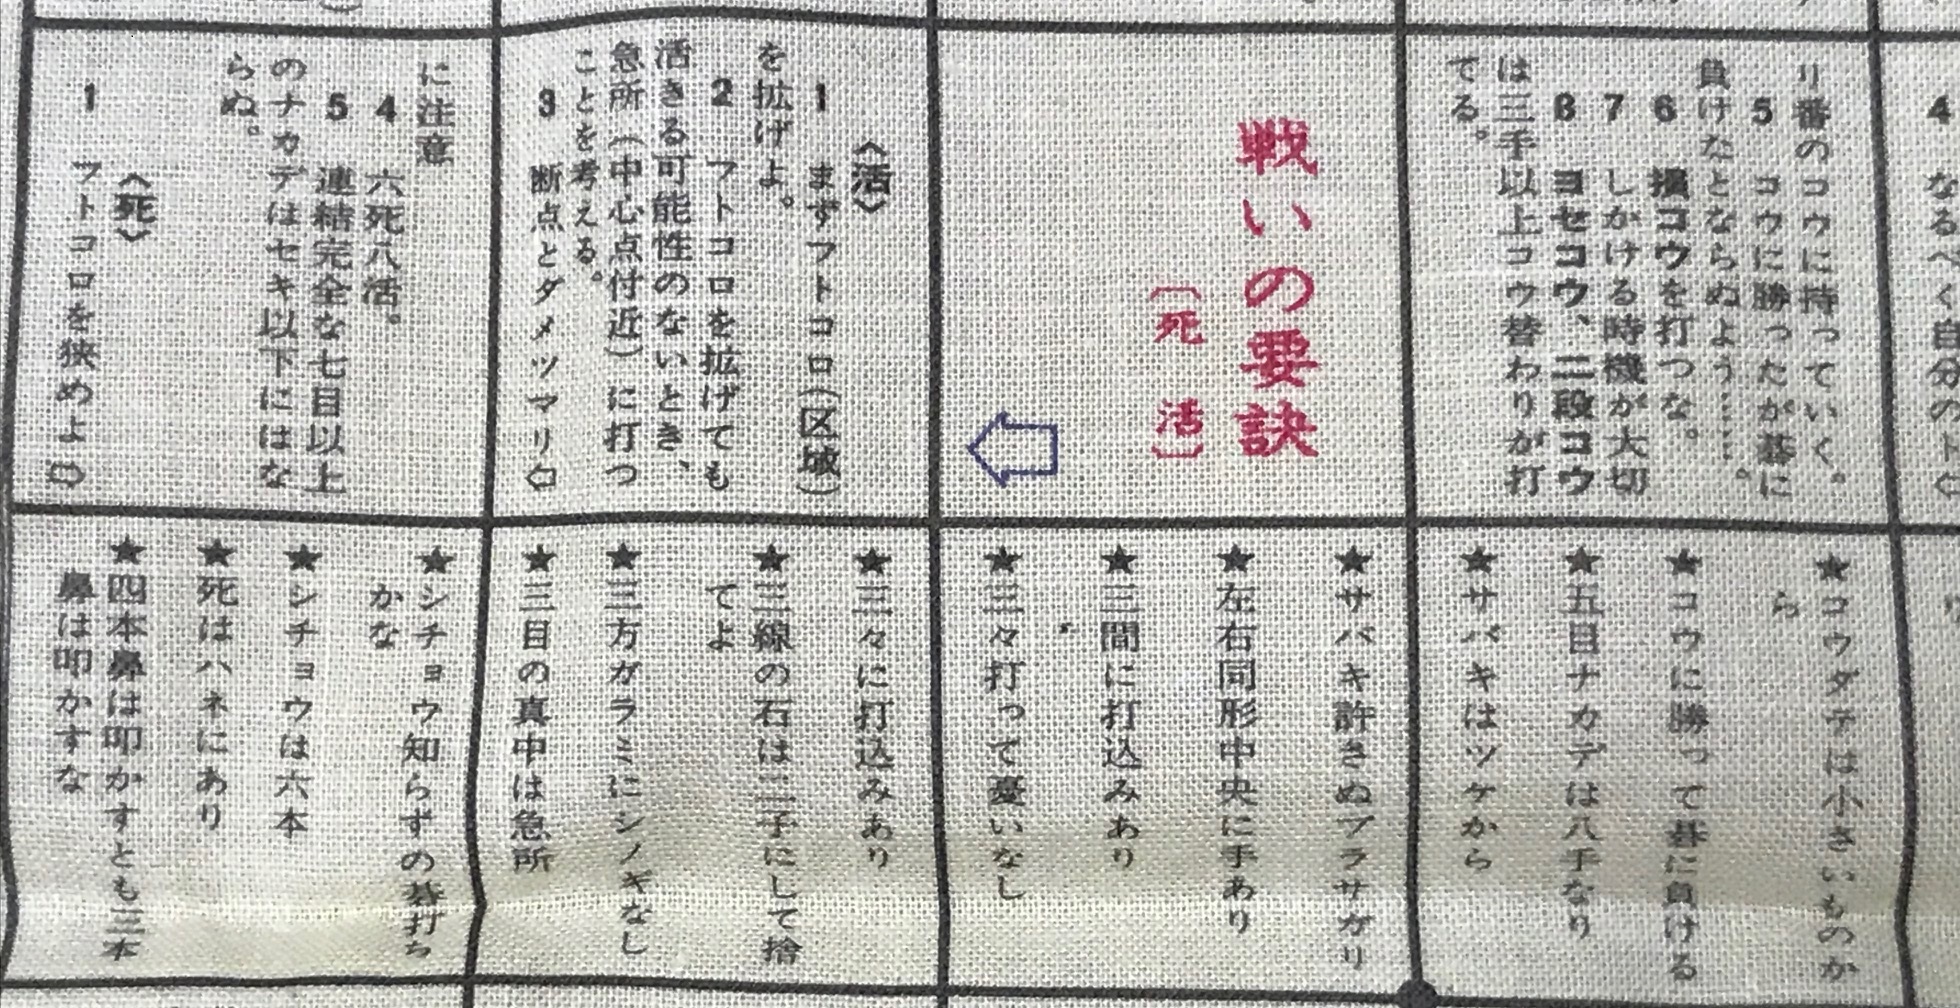 4 なるべく自分の
り番のコウに持っていく。
5 コウに勝ったが碁に
負けたとならぬよう……。
6 損コウを打つな。
7 しかける時機が大切
8 ヨセコウ、二段コウ
は三手以上コウ替わりが打
てる。
戦いの要訣
〔死 活〕
〈活〉
1 まずフトコロ(区域)
を拡げよ。
2 フトコロを拡げても
活きる可能性のないとき、
急所(中心点付近)に打つ
ことを考える。
3 断点とダメツマリ
に注意
4 六死八活。
5 連結完全な七目以上
のナカデはセキ以下にはな
らぬ。
〈死〉
1 フトコロを狭めよ
★コウダテは小さいものか
ら
★コウに勝って碁に負ける
★五目ナカデは八手なり
★サバキはツケから
★サバキ許さぬブラサガリ
★左右同形中央に手あり
★三間に打込みあり
★三々打って憂いなし
★三々に打込みあり
★三線の石は二子にして捨
てよ
★三方ガラミにシノギなし
★三目の真中は急所
★シチョウ知らずの碁打ち
かな
★シチョウは六本
★死はハネにあり
★四本鼻は叩かすとも三本
鼻は叩かすな